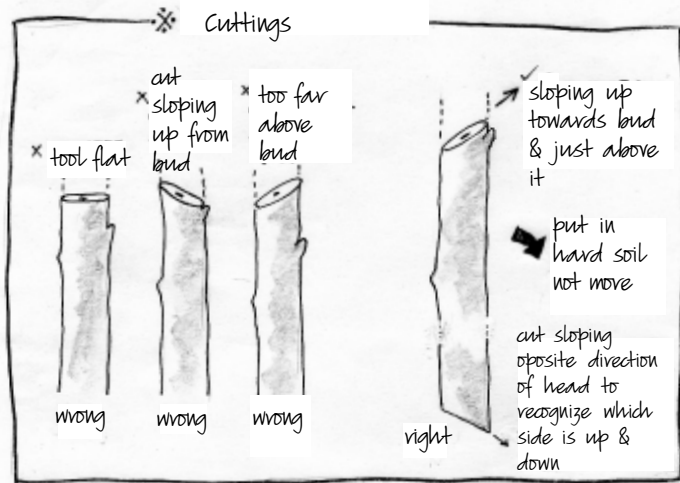 Cuttings
× tool flat
× cut
sloping
up from
bud
× too far
above
bud
✓
sloping up
towards bud
& just above
it
put in
hard soil
not more
cut sloping
oposite direction
of head to
recognize which
side is up &
down
wrong
wrong
wrong
right